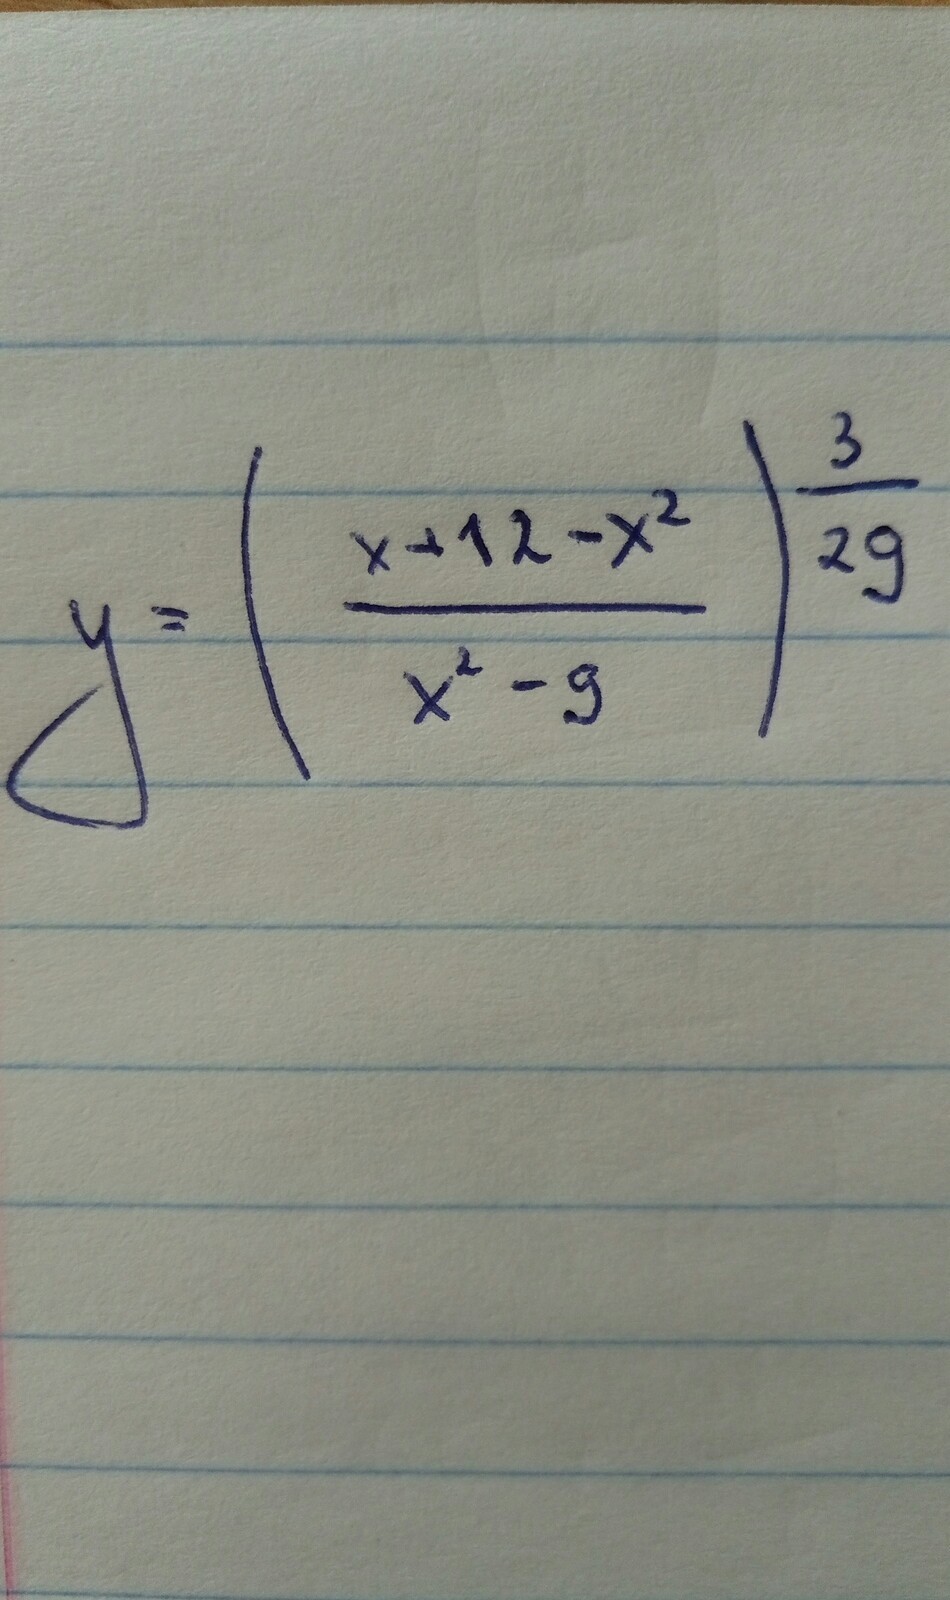 y = ( (x+12-x²) / (x²-9) )^(3/29)